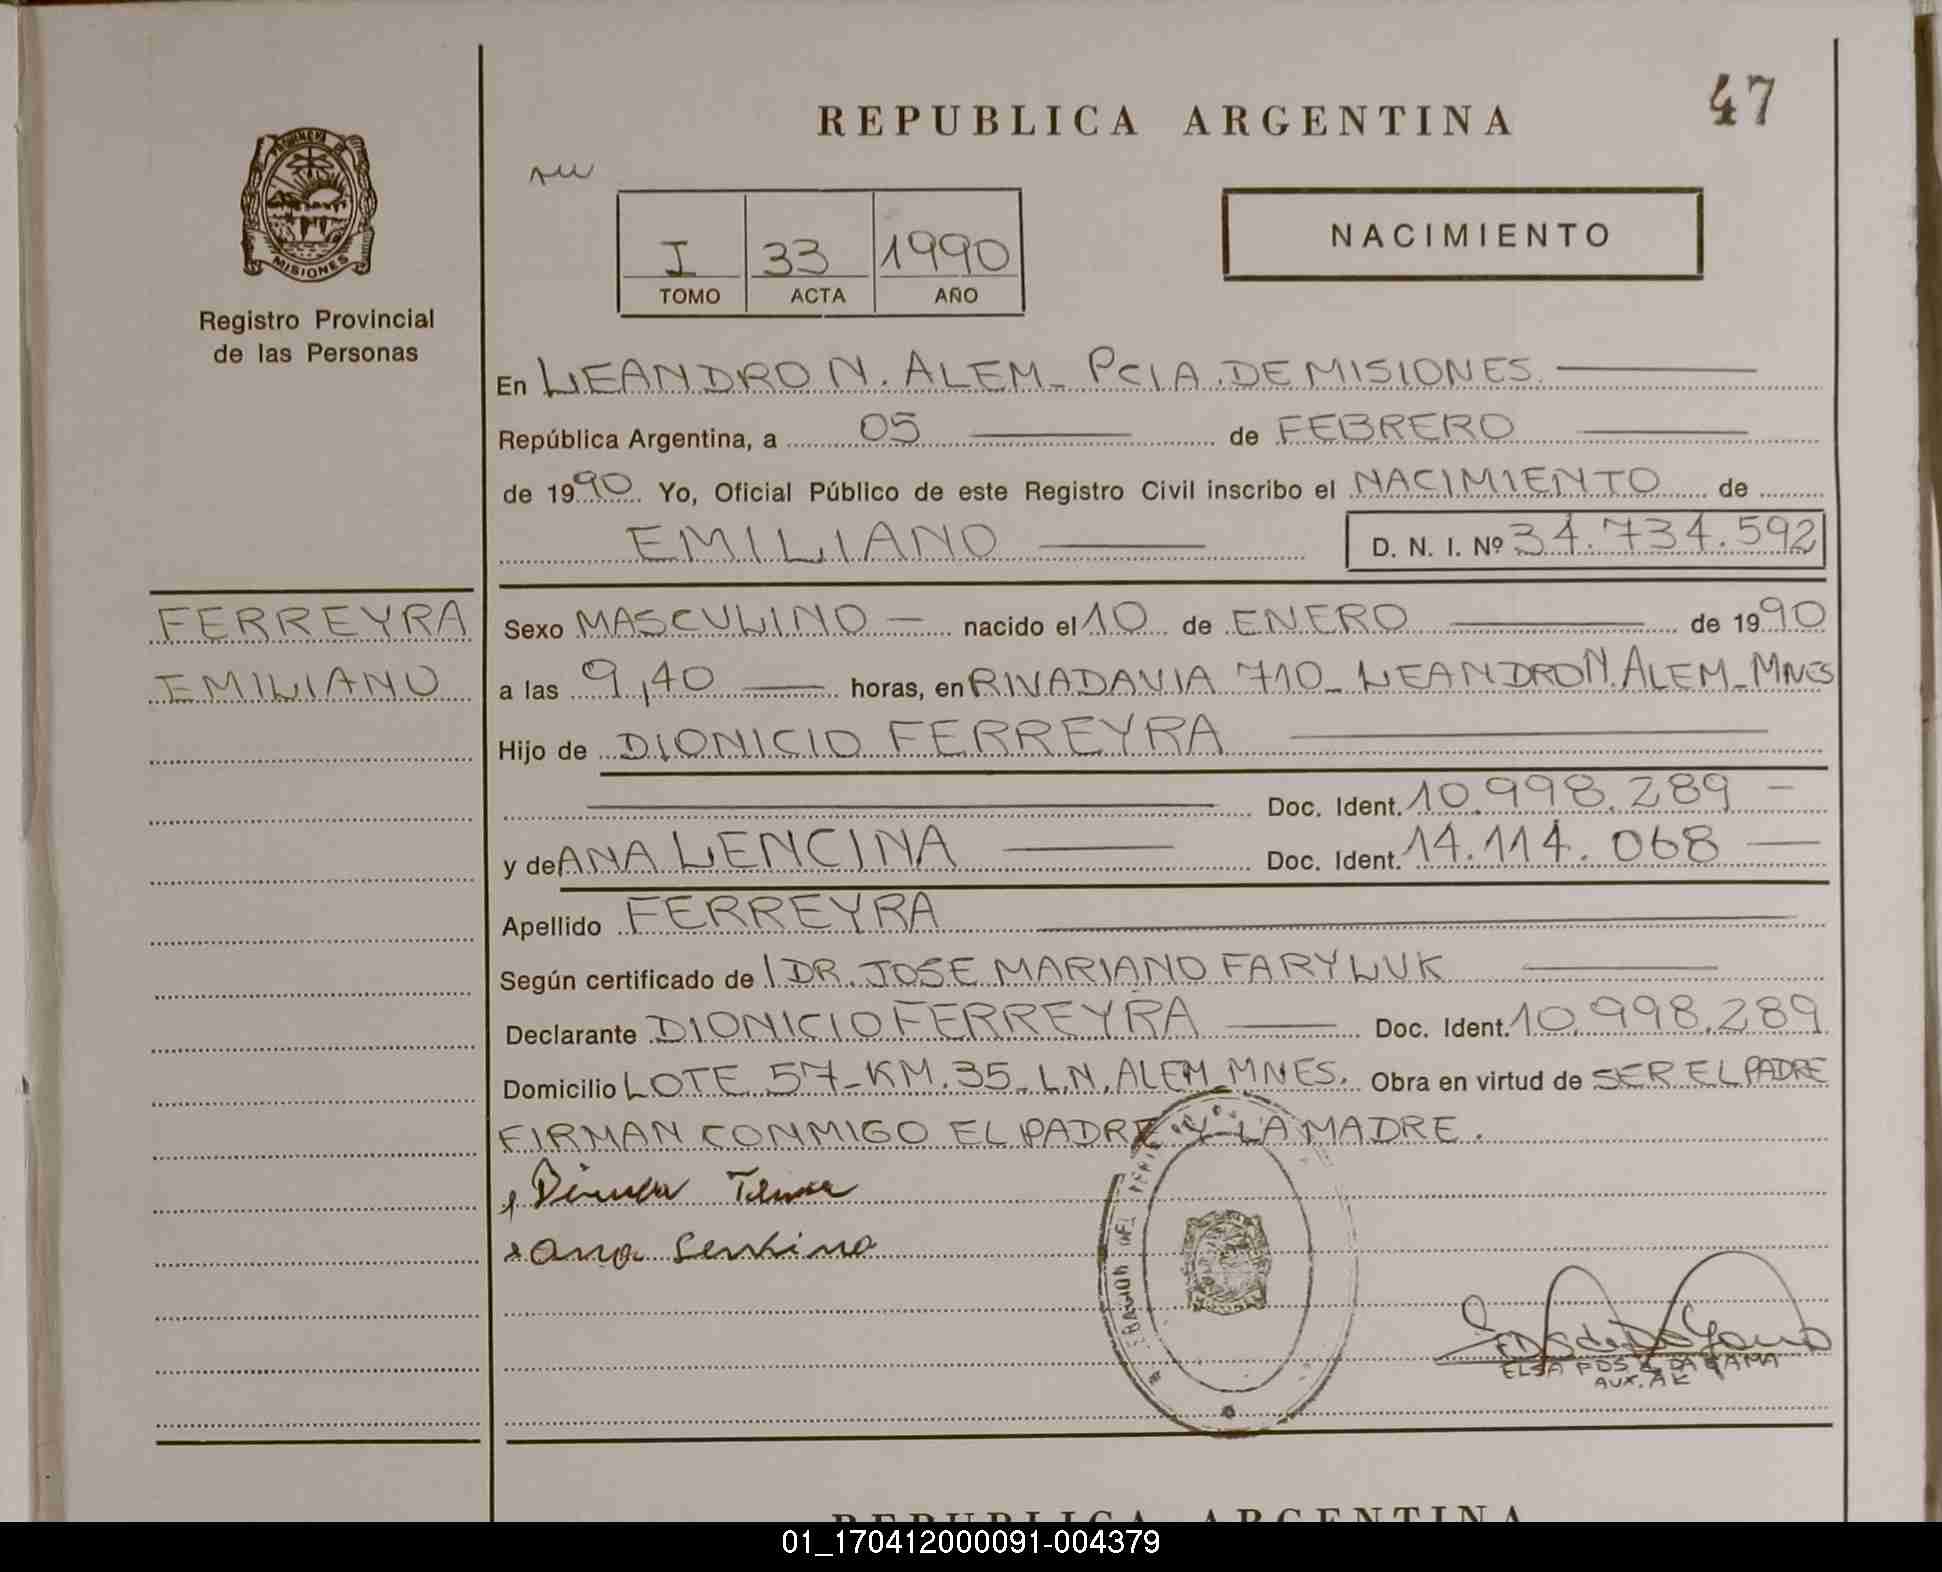 REPUBLICA ARGENTINA
47
I 33 1990
TOMO ACTA AÑO
NACIMIENTO
PROVINCIA DE
MISIONES
Registro Provincial
de las Personas
En LEANDRO N. ALEM - PCIA. DE MISIONES.
República Argentina, a 05 de FEBRERO
de 1990 Yo, Oficial Público de este Registro Civil inscribo el NACIMIENTO de
EMILIANO D. N. I. Nº 34.734.592
FERREYRA
EMILIANO
Sexo MASCULINO - nacido el 10 de ENERO de 1990
a las 9,40 horas, en RIVADAVIA 710 - LEANDRO N. ALEM - MNES
Hijo de DIONICIO FERREYRA
Doc. Ident. 10.998.289 -
y de ANA LENCINA Doc. Ident. 14.114.068
Apellido FERREYRA
Según certificado de DR. JOSE MARIANO FARYLUK
Declarante DIONICIO FERREYRA Doc. Ident. 10.998.289
Domicilio LOTE 57 - KM. 35 - L.N. ALEM - MNES. Obra en virtud de SER EL PADRE
FIRMAN CONMIGO EL PADRE Y LA MADRE.
Ana
ELSA DA GAMA
AUX.
REPUBLICA ARGENTINA
01_170412000091-004379